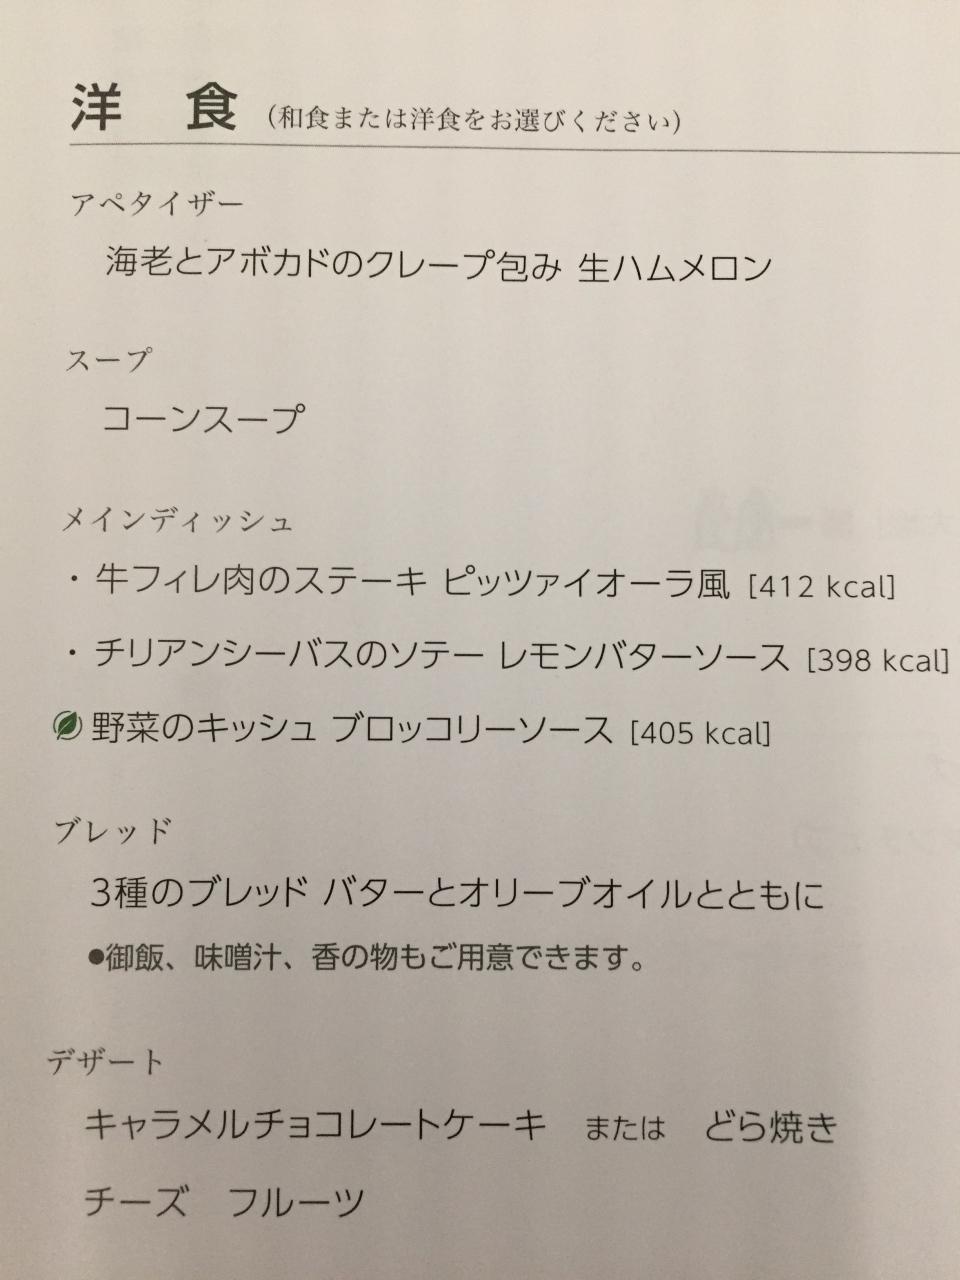 洋　食　(和食または洋食をお選びください)
アペタイザー
海老とアボカドのクレープ包み 生ハムメロン
スープ
コーンスープ
メインディッシュ
・牛フィレ肉のステーキ ピッツァイオーラ風 [412 kcal]
・チリアンシーバスのソテー レモンバターソース [398 kcal]
野菜のキッシュ ブロッコリーソース [405 kcal]
ブレッド
3種のブレッド バターとオリーブオイルとともに
●御飯、味噌汁、香の物もご用意できます。
デザート
キャラメルチョコレートケーキ　または　どら焼き
チーズ　フルーツ